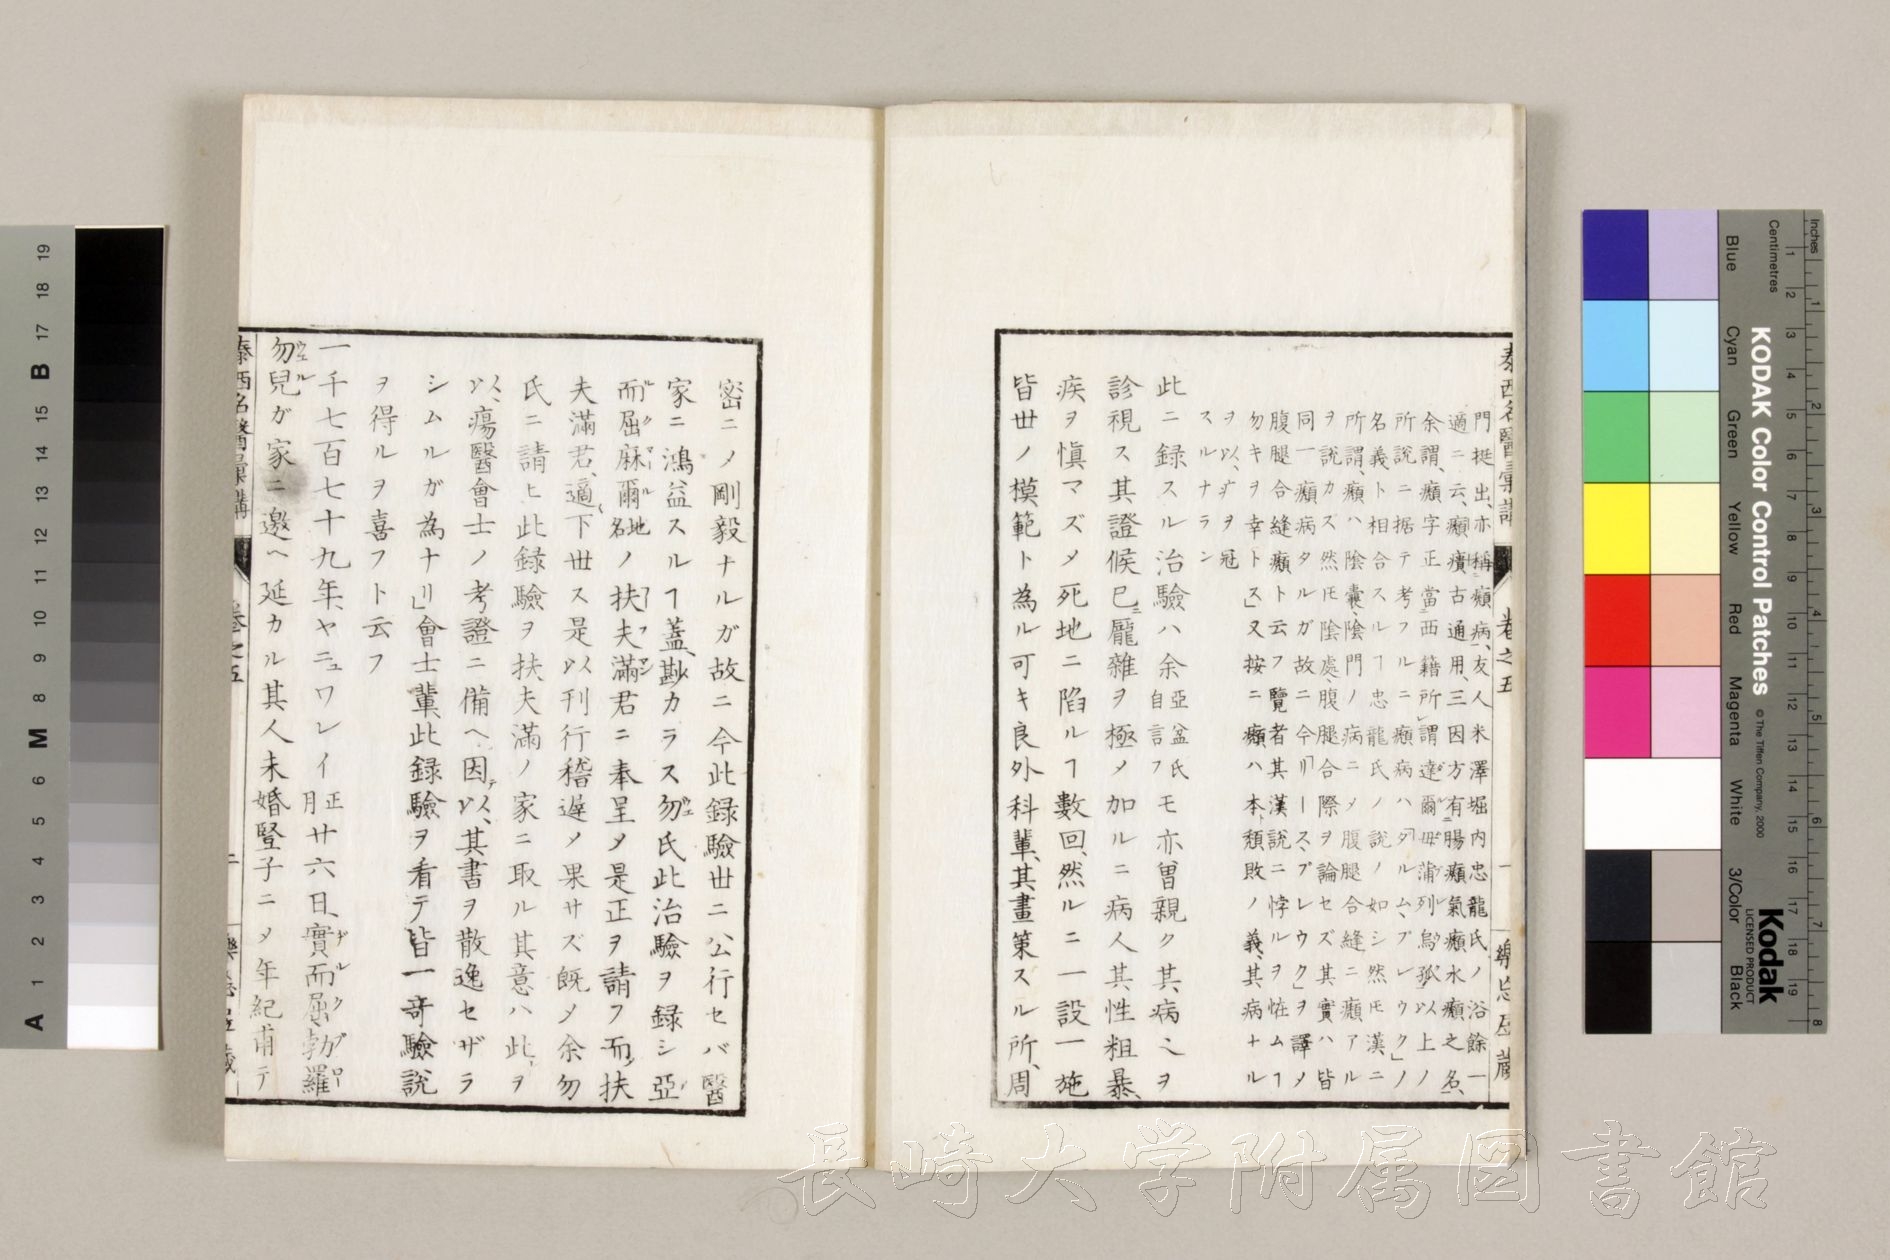 泰西名醫彙講 卷之五 一 樂忘居藏
門挺出、亦稱癩病、友人米澤堀内忠龍氏ノ浴餘一
適ニ云、癩㿗古通用、三因方有腸癩氣癩水癩之名、
余謂、癩字正當西籍所謂達爾毋蒲列烏孤、以上ノ
所說ニ据テ考フルニ癩病ハ「ダルム、ブレウク」ノ
名義ト相合スルヿ忠龍氏ノ說ノ如シ然モ漢ニ
所謂、癩ハ陰囊、陰門ノ病ニメ腹腿合縫ニ癩アル
ヲ說カス然モ陰處、腹腿合際ヲ論セズ其實ハ皆
同一癩病タルガ故ニ今「リース、ブレウク」ヲ譯メ
腹腿合縫癩ト云フ覽者其漢說ニ悖ルヲ恠ムヿ
勿キヲ幸トス」又按ニ癩ハ本、頹敗ノ義、其病ナル
ヲ以、疒ヲ冠
スルナラン
此ニ錄スル治驗ハ余亞盆氏自言フモ亦曾親ク其病ヲ
診視ス其證候已ニ龐雜ヲ極メ加ルニ病人其性粗暴、
疾ヲ愼マズメ死地ニ陷ルヿ數回、然ルニ一設一施
皆世ノ模範ト為ル可キ良外科輩、其畫策スル所、周
密ニノ剛毅ナルガ故ニ今此錄驗世ニ公行セバ醫
家ニ鴻益スルヿ蓋尠カラス勿氏此治驗ヲ錄シ亞
而屈麻爾地名ノ扶夫滿君ニ奉呈メ是正ヲ請フ而扶
夫滿君、適下世ス是以刊行稽遲メ果サズ旣メ余勿
氏ニ請ヒ此錄驗ヲ扶夫滿ノ家ニ取ル其意ハ此ヲ
以、瘍醫會士ノ考證ニ備ヘ、因以、其書ヲ散逸セザラ
シムルガ為ナリ」會士輩此錄驗ヲ看テ皆一奇驗說
ヲ得ルヲ喜フト云フ
一千七百七十九年、ヤニュワレイ正月廿六日、實而屈勃羅
勿兒ガ家ニ邀ヘ延カル其人未婚豎子ニメ年紀甫テ
泰西名醫彙講 卷之五 二 樂忘居藏
KODAK Color Control Patches
© The Tiffen Company, 2000
Kodak
LICENSED PRODUCT
Inches
Centimetres
Blue Cyan Green Yellow Red Magenta White 3/Color Black
A 1 2 3 4 5 6 M 8 9 10 11 12 13 14 15 B 17 18 19
長崎大学附属図書館